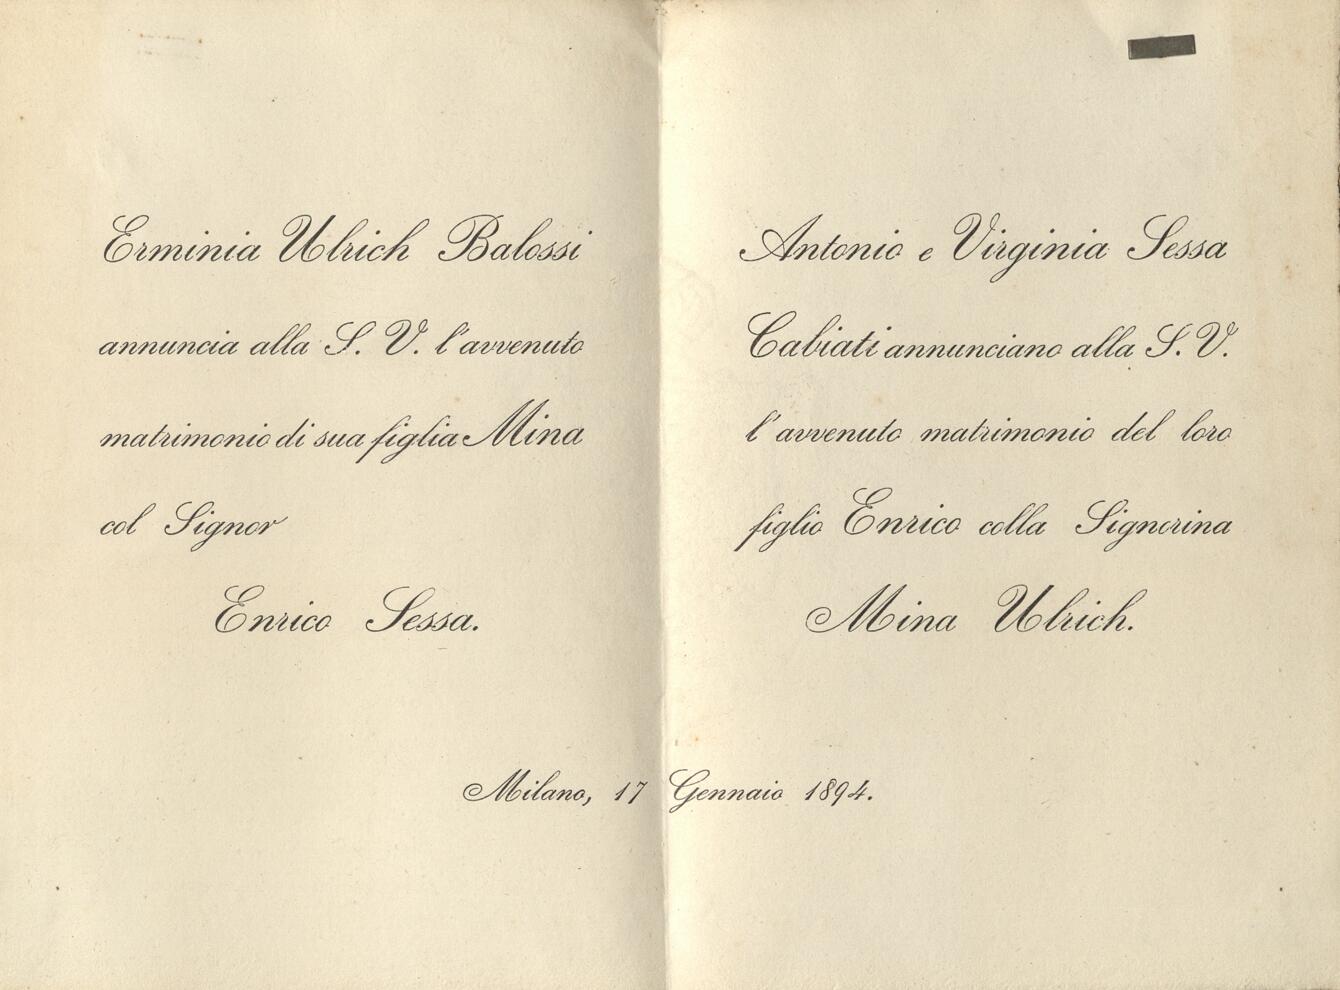 Erminia Ulrich Balossi
annuncia alla S. V. l'avvenuto
matrimonio di sua figlia Mina
col Signor
Enrico Sessa.
Antonio e Virginia Sessa
Cabiati annunciano alla S. V.
l'avvenuto matrimonio del loro
figlio Enrico colla Signorina
Mina Ulrich.
Milano, 17 Gennaio 1894.